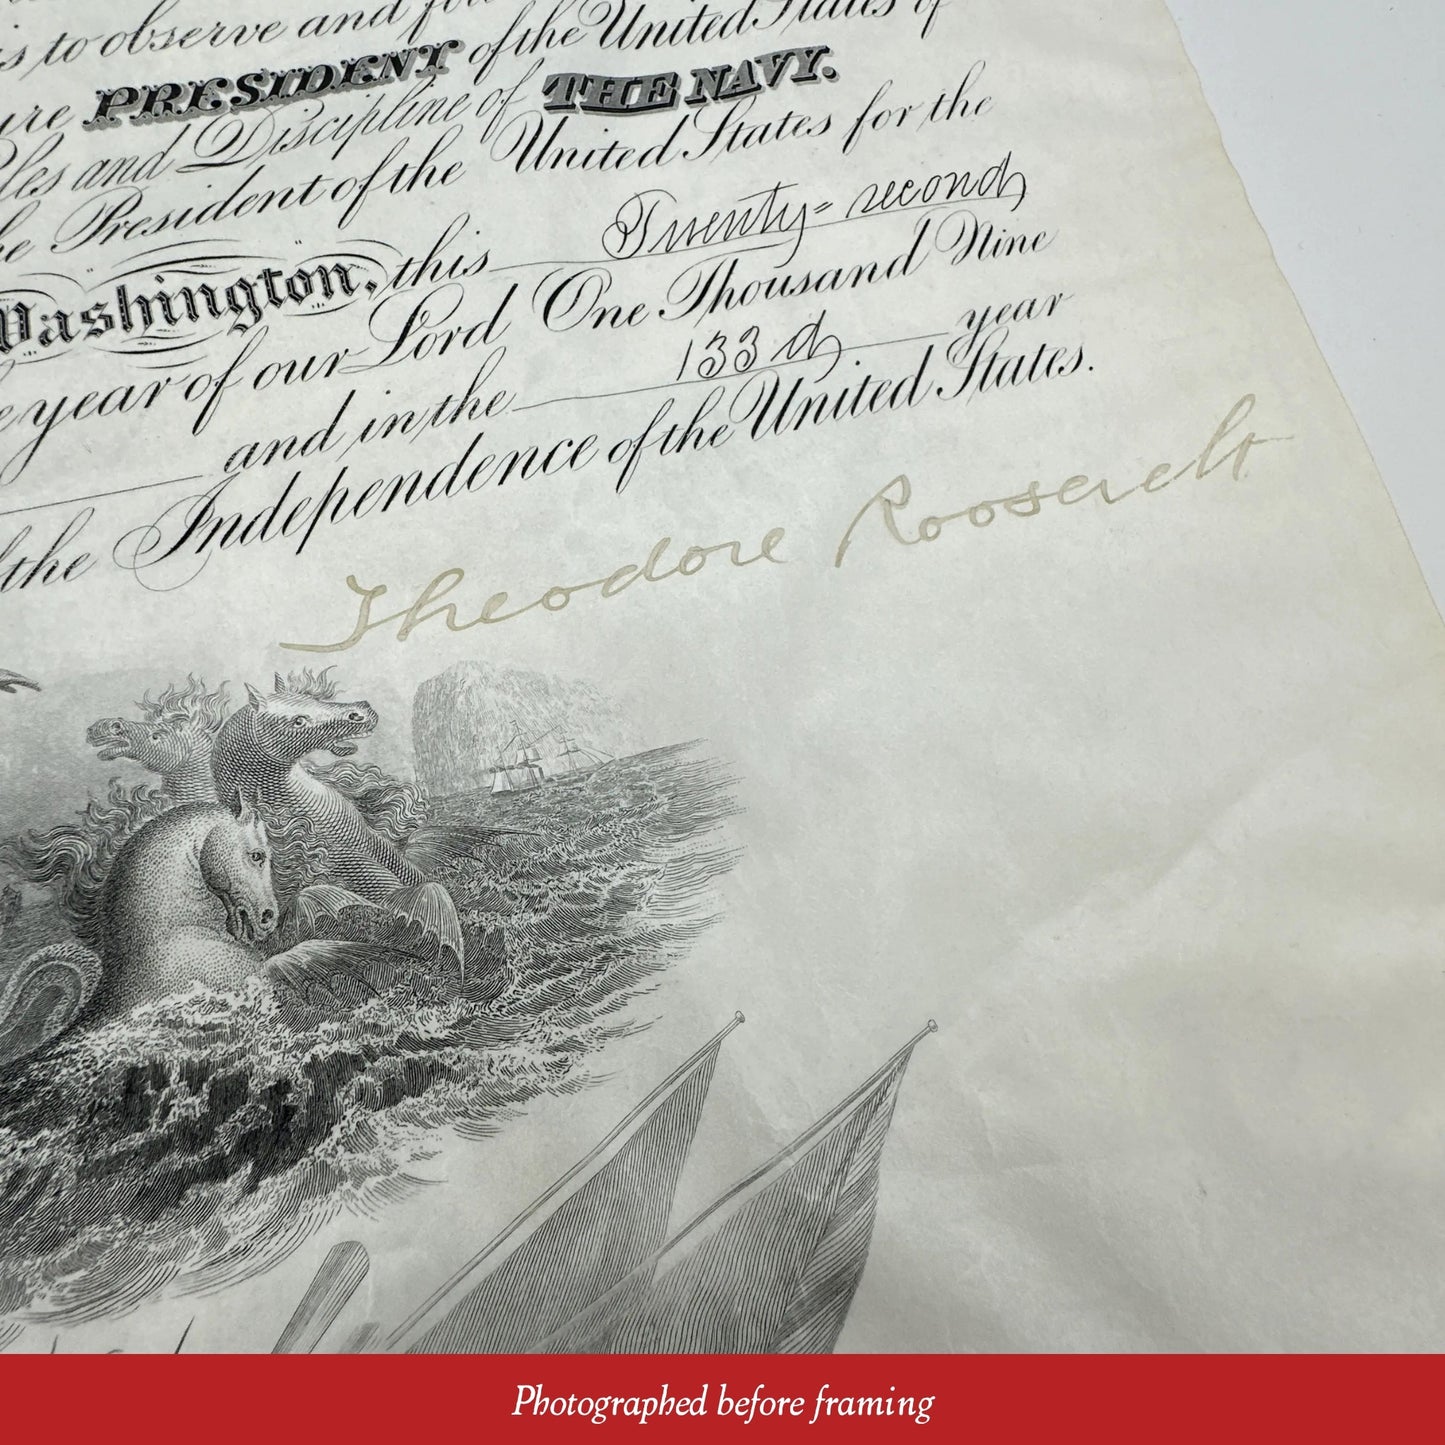 is to observe and
PRESIDENT of the United States of
les and Discipline of THE NAVY.
President of the United States for the
Washington, this Twenty-second
year of our Lord One Thousand Nine
and in the 133d year
the Independence of the United States.
Theodore Roosevelt
Photographed before framing